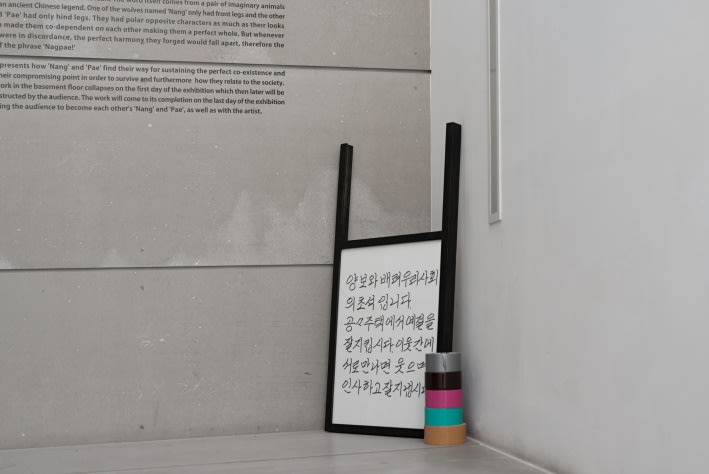 an ancient Chinese legend. One of the wolves named 'Nang' only had front legs and the other
'Pae' had only hind legs. They had polar opposite characters as much as their looks
made them co-dependent on each other making them a perfect whole. But whenever
were in discordance, the perfect harmony they forged would fall apart, therefore the
f the phrase 'Nagpae!'
presents how 'Nang' and 'Pae' find their way for sustaining the perfect co-existence and
heir compromising point in order to survive and furthermore how they relate to the society.
ork in the basement floor collapses on the first day of the exhibition which then later will be
structed by the audience. The work will come to its completion on the last day of the exhibition
ing the audience to become each other's 'Nang' and 'Pae', as well as with the artist.
양보와 배려우리사회
의초석 입니다.
공々주택에서예절을
잘지킵시다. 이웃간에
서로만나면 웃으며
인사하고잘지냅시다